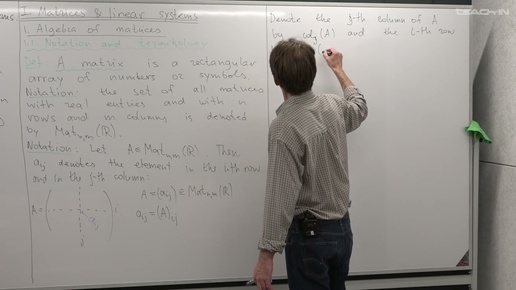 I Matrices & linear systems
1. Algebra of matrices
1.1 Notation and terminology
Def. A matrix is a rectangular
array of numbers or symbols.
Notation: the set of all matrices
with real entries and with n
rows and m columns is denoted
by Mat_{n,m}(ℝ).
Notation: Let A∈Mat_{n,m}(ℝ). Then
a_{ij} denotes the element in the i-th row
and in the j-th column:
A = (a_{ij}) ∈ Mat_{n,m}(ℝ)
a_{ij} = (A)_{ij}
A =
a_{ij}
Denote the j-th column of A
by col_j(A) and the i-th row
TEACH-IN